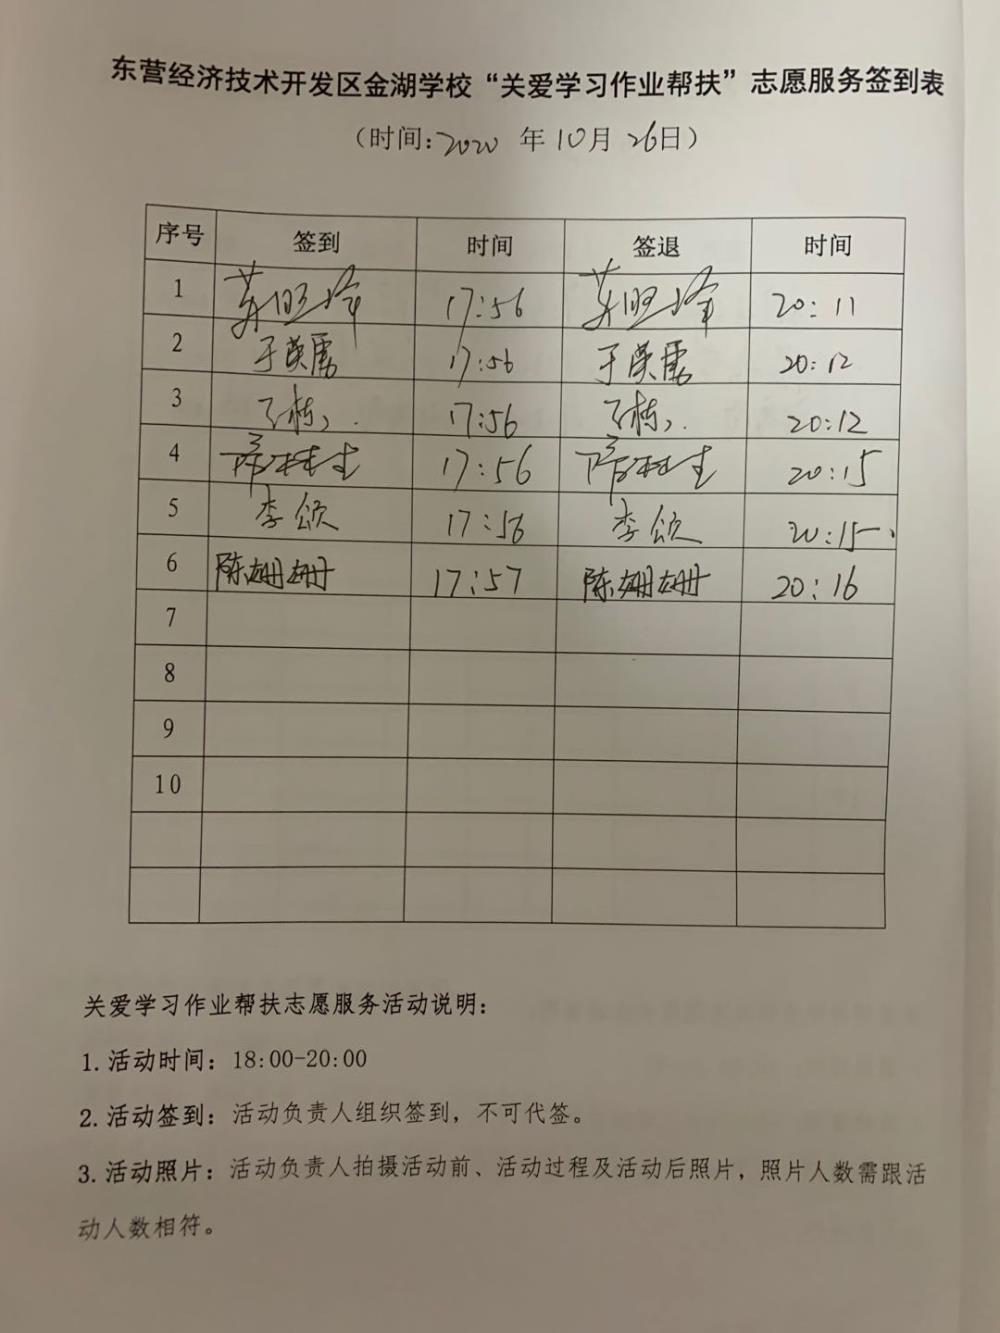 东营经济技术开发区金湖学校“关爱学习作业帮扶”志愿服务签到表
（时间:2020 年10月26日）
序号 签到 时间 签退 时间
1 17:56 20:11
2 于英雳 17:56 于英雳 20:12
3 17:56 20:12
4 17:56 20:15
5 李颂 17:56 李颂 20:15
6 陈姗姗 17:57 陈姗姗 20:16
7
8
9
10
关爱学习作业帮扶志愿服务活动说明：
1.活动时间：18:00-20:00
2.活动签到：活动负责人组织签到，不可代签。
3.活动照片：活动负责人拍摄活动前、活动过程及活动后照片，照片人数需跟活
动人数相符。